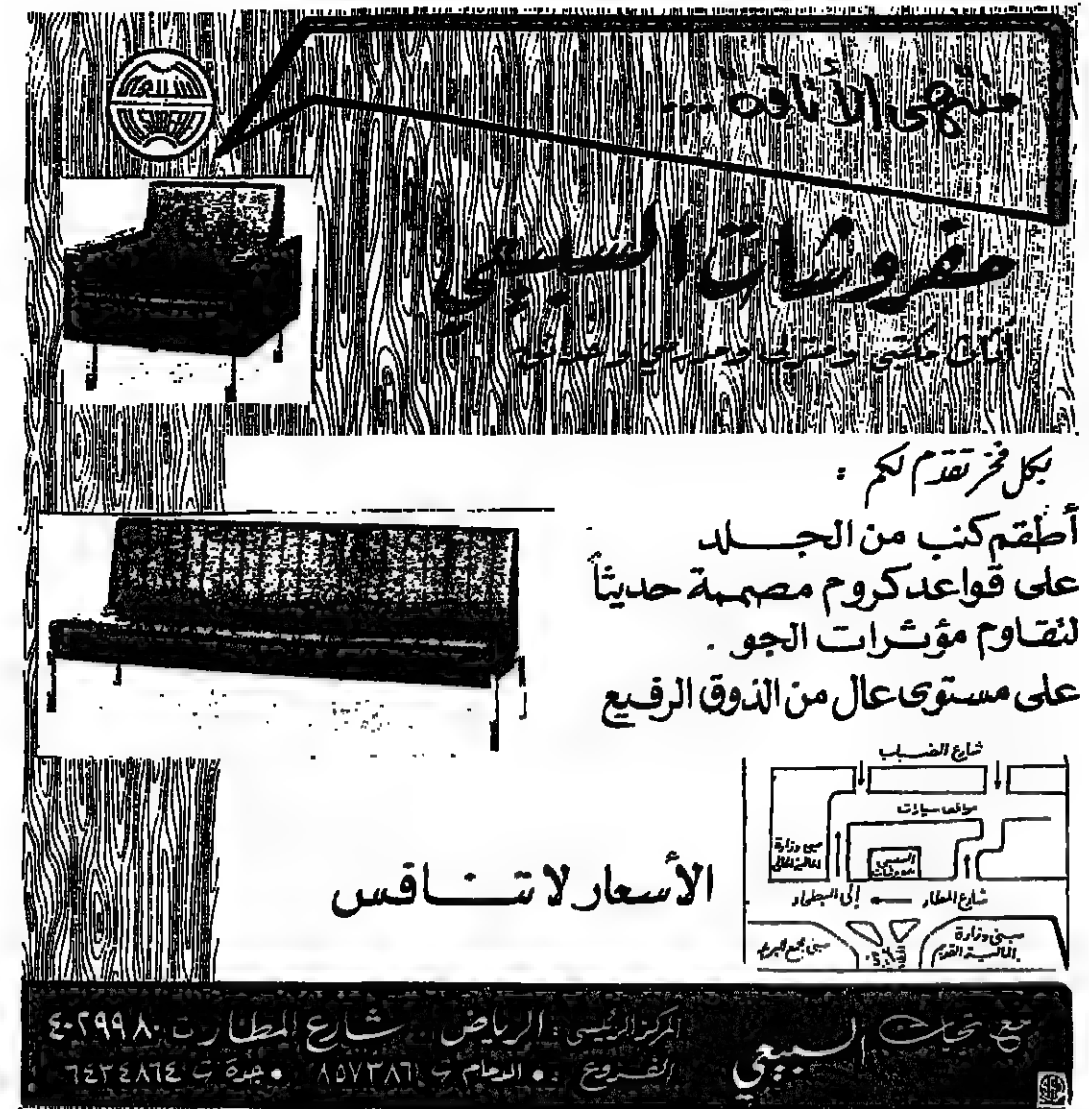 منتهى الأناقة...
مفروشات السبيعي
أثاث مكتبي ومنزلي ومدرسي وحدائق
بكل فخر تقدم لكم :
أطقم كنب من الجلد
على قواعد كروم مصممة حديثاً
لتقاوم مؤثرات الجو .
على مستوى عال من الذوق الرفيع
شارع الضباب
مواقف سيارات
مبنى وزارة
المالية الحالي
السبيعي
مفروشات
شارع المطار ← إلى البطحاء
مبنى وزارة
المالية القديم
مبنى مجمع البريد
الأسعار لا تنافس
مع تحيات السبيعي
المركز الرئيسي : الرياض . شارع المطار ت ٤٠٢٩٩٨٠
الفروع : • الدمام ت ٨٥٧٣٨٦ • جدة ت ٦٤٢٤٨٦٤